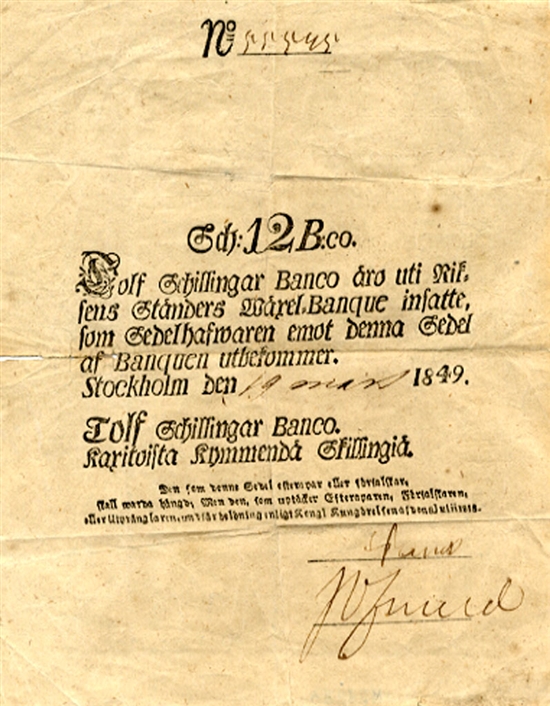 No 55545
Sch: 12 B:co.
Tolf Schillingar Banco äro uti Rik-
sens Ständers Wäxel-Banque insatte,
som Sedelhafwaren emot denna Sedel
af Banquen utbekommer.
Stockholm den 19 mars 1849.
Tolf Schillingar Banco.
Kaxitoista Kymmendä Skillingiä.
Den som denne Sedel efterapar eller förfalskar,
skall warda hängd; Men den, som uptäcker Efteraparen, Förfalskaren,
eller Utprånglaren, undfår belöning enligt Kongl. Kungörelsen af den